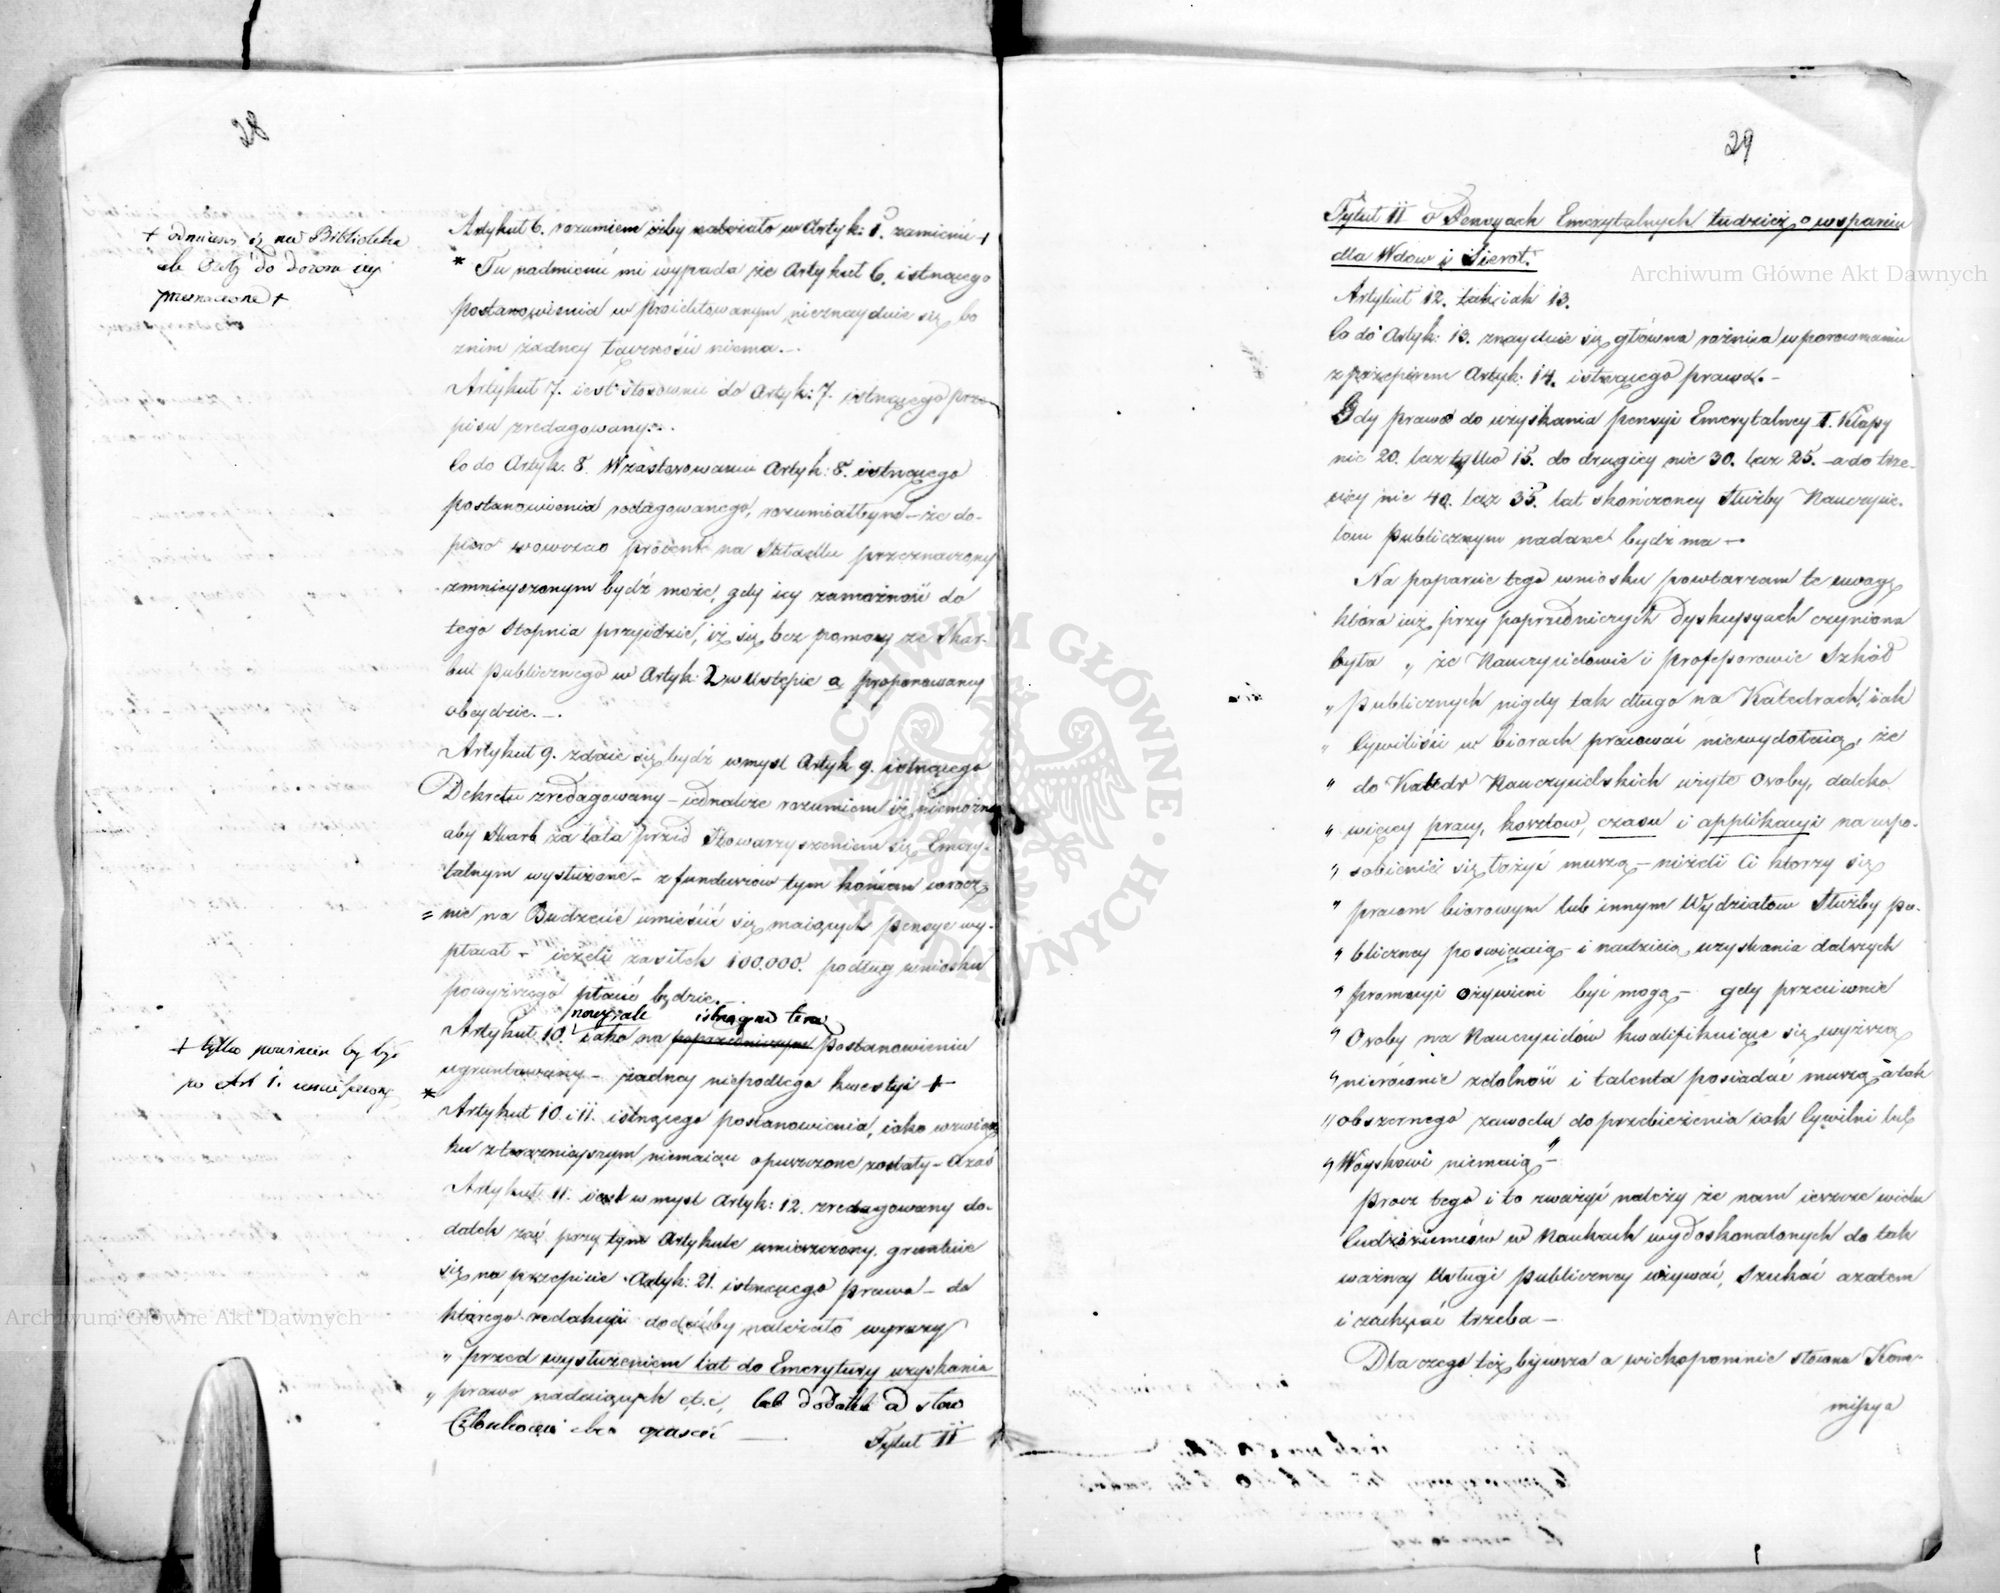 28
+ odnieść się na Biblioteka
ale
przeznaczone +
Artykuł 6. rozumiem iżby należało w Artyk: 1. zamienić +
* Tu nadmienić mi wypada że Artykuł 6. istnącego
postanowienia w proiektowanym nieznayduie się bo
znim żadney łączności niema. –
Artykuł 7. iest stosownie do Artyk: 7. istnącego prze
pisu zredagowany. –
Co do Artyk. 8. W zastosowaniu Artyk: 8. istnącego
postanowienia redagowanego, rozumiałbym – że do-
piero wowczas procent na Składkę przeznaczony
zmnieyszonym bydź może, gdy iey zamożność do
tego stopnia przyidzie, iż się bez pomocy ze Skar-
bu publicznego w Artyk: 2 w ustępie a proponowaney
obeydzie. –
Artykuł 9. zdaie się bydź w myśl Artyk 9. istnącego
Dekretu zredagowany – iednakże rozumiem iż niemożna
aby Skarb za lata przed Stowarzyszeniem się Emery-
talnym wysłużone – z funduszow tym końcem corocz
= nie na Budżecie umieścić się maiących pensye wy-
płacał – ieżeli zasiłek 100,000. podług wniosku
powyższego płacić będzie. –
Artykuł 10. iako na poprzedniczym postanowieniu
ugruntowany – żadney niepodlega kwestyi +
+ tylko powinien by być
w Art 1. umieszczony
* Artykuł 10 i 11. istnącego postanowienia, iako w związ
ku z niemaiące opuszczone zostały –
Artykuł 11. iest w myśl Artyk: 12. zredagowany do-
datek zaś przy tym Artykule umieszczony, gruntuie
się na przepisie Artyk: 21. istnącego prawa – do
którego redakcyi dodaćby należało wyrazy
„ przed wysłużeniem lat do Emerytury uzyskania
„ prawo nadaiących etc, lub dodatek a
Tytuł II
29
Tytuł II o Pensyach Emerytalnych tudzież o wsparciu
dla Wdow i Sierot.
Artykuł 12. tak iak 13.
Co do Artyk: 13. znayduie się główna rożnica w porownaniu
z przepisem Artyk: 14. istnącego prawa. –
Gdy prawo do uzyskania pensyi Emerytalney I. Klassy
nie 20. lecz tylko 15. do drugiey nie 30. lecz 25. – a do trze-
ciey nie 40. lecz 35. lat skończoney Służby Nauczycie-
lom publicznym nadane bydź ma –
Na poparcie tego wniosku powtarzam tę uwagę
ktora iuż przy poprzedniczych dyskussyach czyniona
była „ że Nauczyciele i professorowie Szkół
„ publicznych nigdy tak długo na Katedrach, iak
„ Cywiliści w biorach pracować niewydołaią, że
„ do Katedr Nauczycielskich użyte Osoby, daleko
„ więcey pracy, kosztow, czasu i applikacyi na uspo-
„ sobienie się łożyć muszą – niżeli Ci ktorzy się
„ pracom biorowym lub innym Wydziałow Służby pu-
„ bliczney poswięcaią – i nadzieią uzyskania dalszych
„ promocyi ożywieni być mogą – gdy przeciwnie
„ Osoby na Nauczycielów kwalifikuiące się wyższą
„ nierównie zdolność i talenta posiadać muszą – a tak
„ obszernego zawodu do przebieżenia iak Cywilni lub
„ Woyskowi niemaią –"
Procz tego i to zważyć należy że nam ieszcze wielu
Cudzoziemców w Naukach wydoskonalonych do tak
ważney Usługi publiczney używać, Szukać a zatem
i zachęcać trzeba –
Dla czego też bywsza a wiekopomnie sławna Kom-
missya
Archiwum Główne Akt Dawnych
Archiwum Główne Akt Dawnych
ARCHIWUM GŁÓWNE AKT DAWNYCH